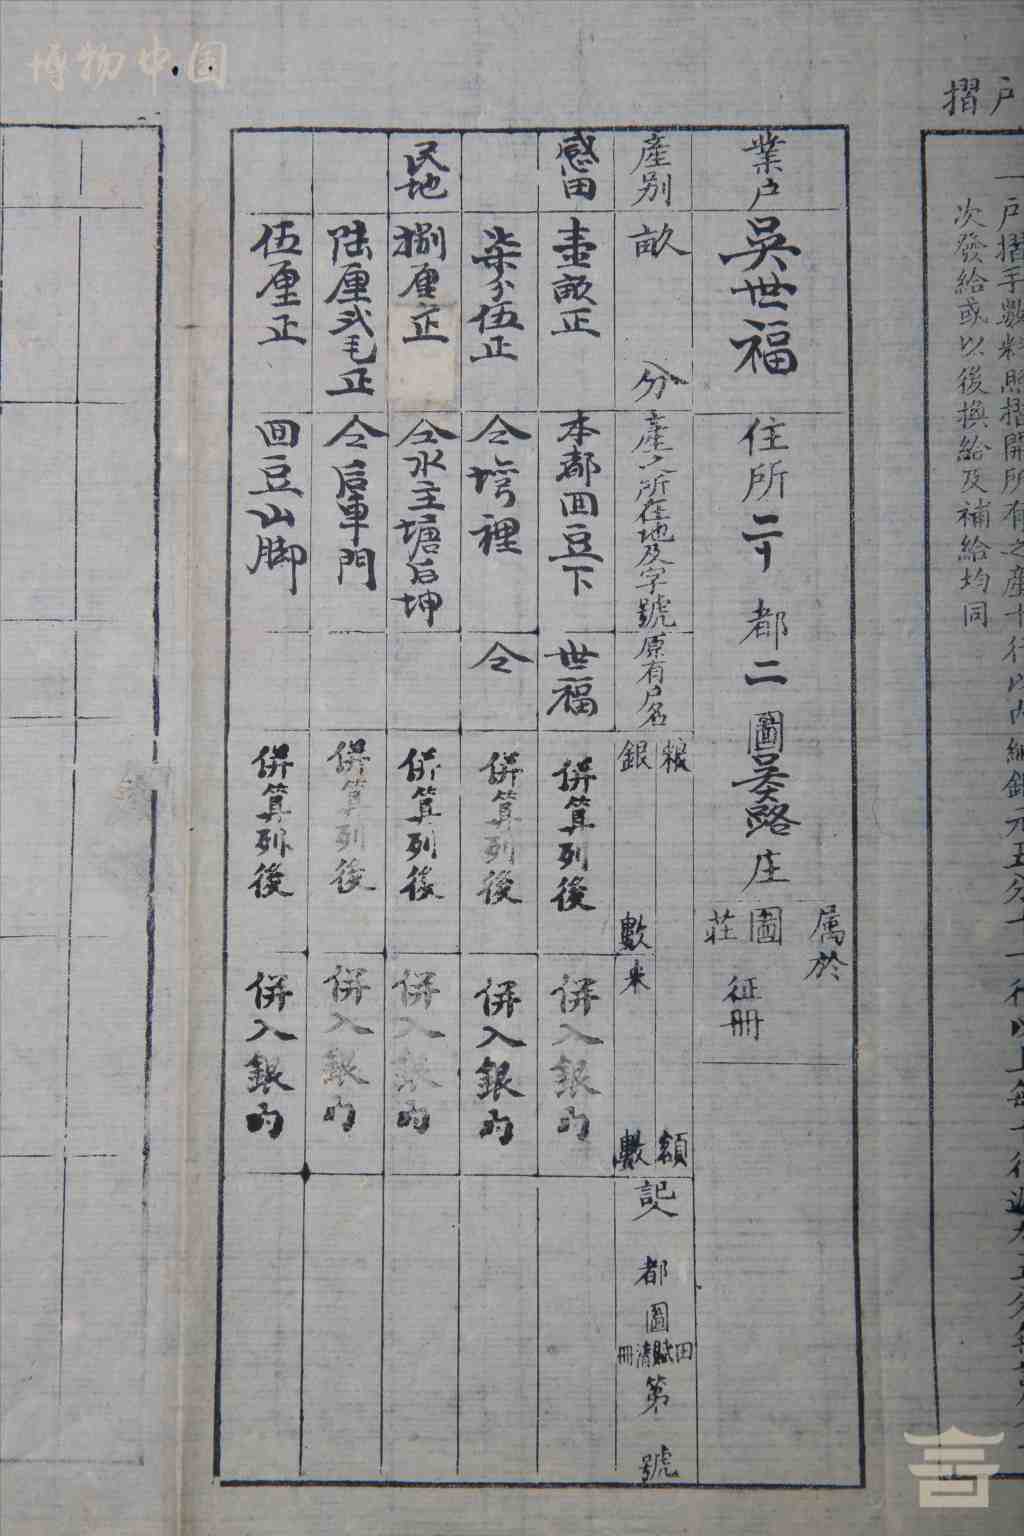 博物中国
戶
摺
一戶摺手數料照摺開所有之產十行以內納銀元五分十一行以上每十行遞加五分
次發給或以後換給及補給均同
業戶 吳世福 住所 二十 都 二 圖 吴路 庄
屬於
圖
莊
征冊
產別 畝 分 產之所在地及字號 原有戶名 粮 額
銀 數 米 數
記 都 圖 田賦清冊 第 號
感田 壹畝正 本都回豆下 世福 併算列後 併入銀內
柒分伍正 仝塆裡 仝 併算列後 併入銀內
民地 捌厘正 仝水主塘后坤 併算列後 併入銀內
陆厘弍毛正 仝后車門 併算列後 併入銀內
伍厘正 回豆山脚 併算列後 併入銀內